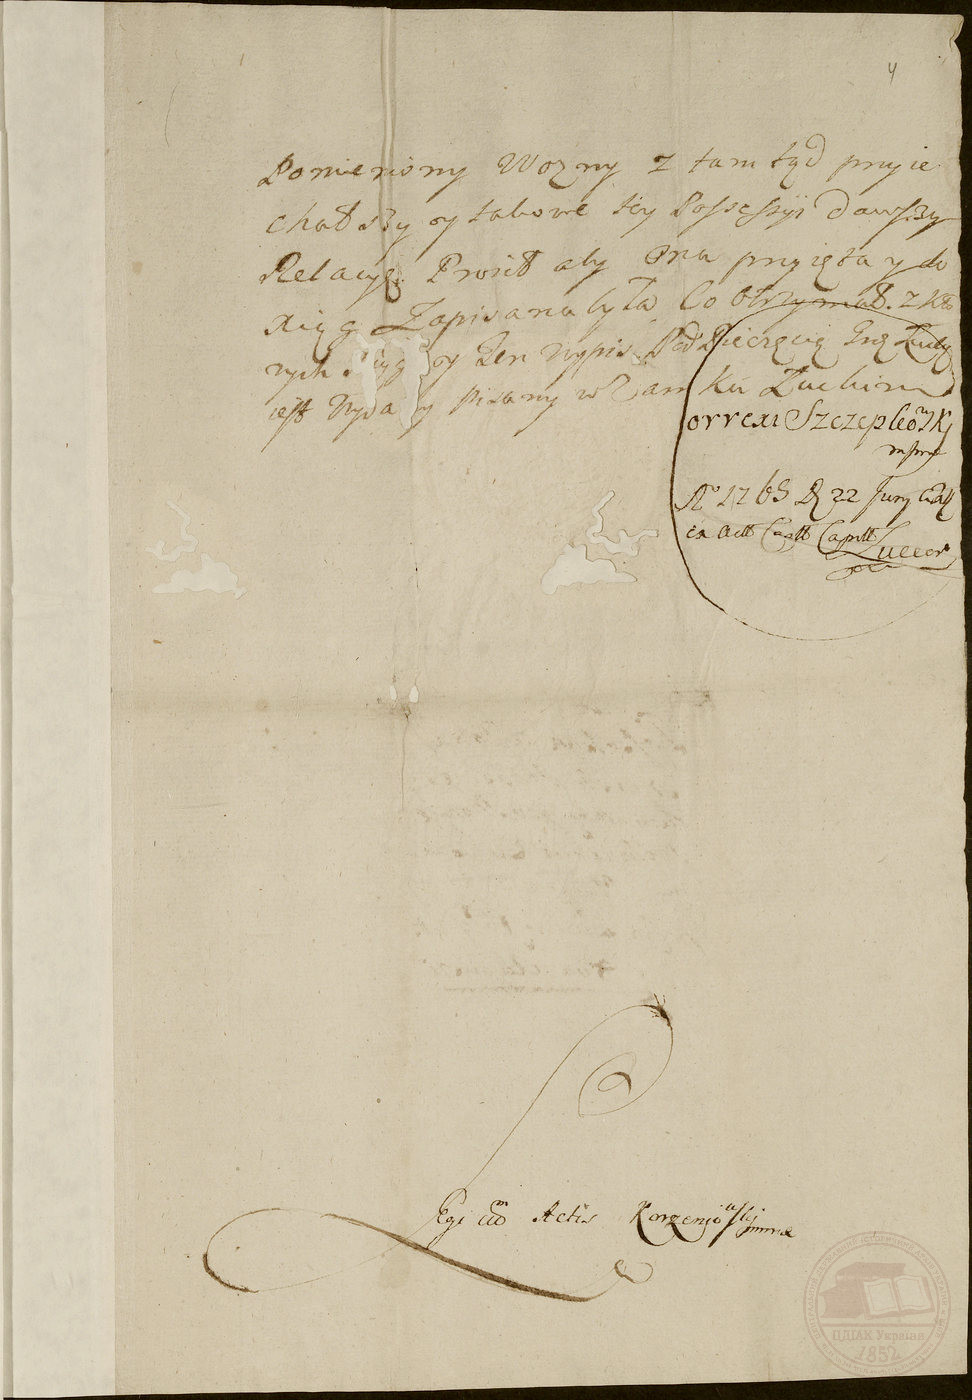 4
Pomieniony Wozny z tamtąd przyie
chawszy y takowe tey Possessyi dawszy
Relacyą. Prosił aby Ona przyięta y do
xiąg Zapisana była Co Otrzymał. z Kto
rych Xiąg y Ten Wypis Pod Pieczęcią Grą Łucką
iest Wydany Pisany w Zamku Łuckim
Correxi Szczepkowski
mpp
Ao 1765 D 22 Juny
ex Actt Castt Capitt
Luceor
Legi cum Actis Korzeniowski mpria
ЦДІАК України
1852